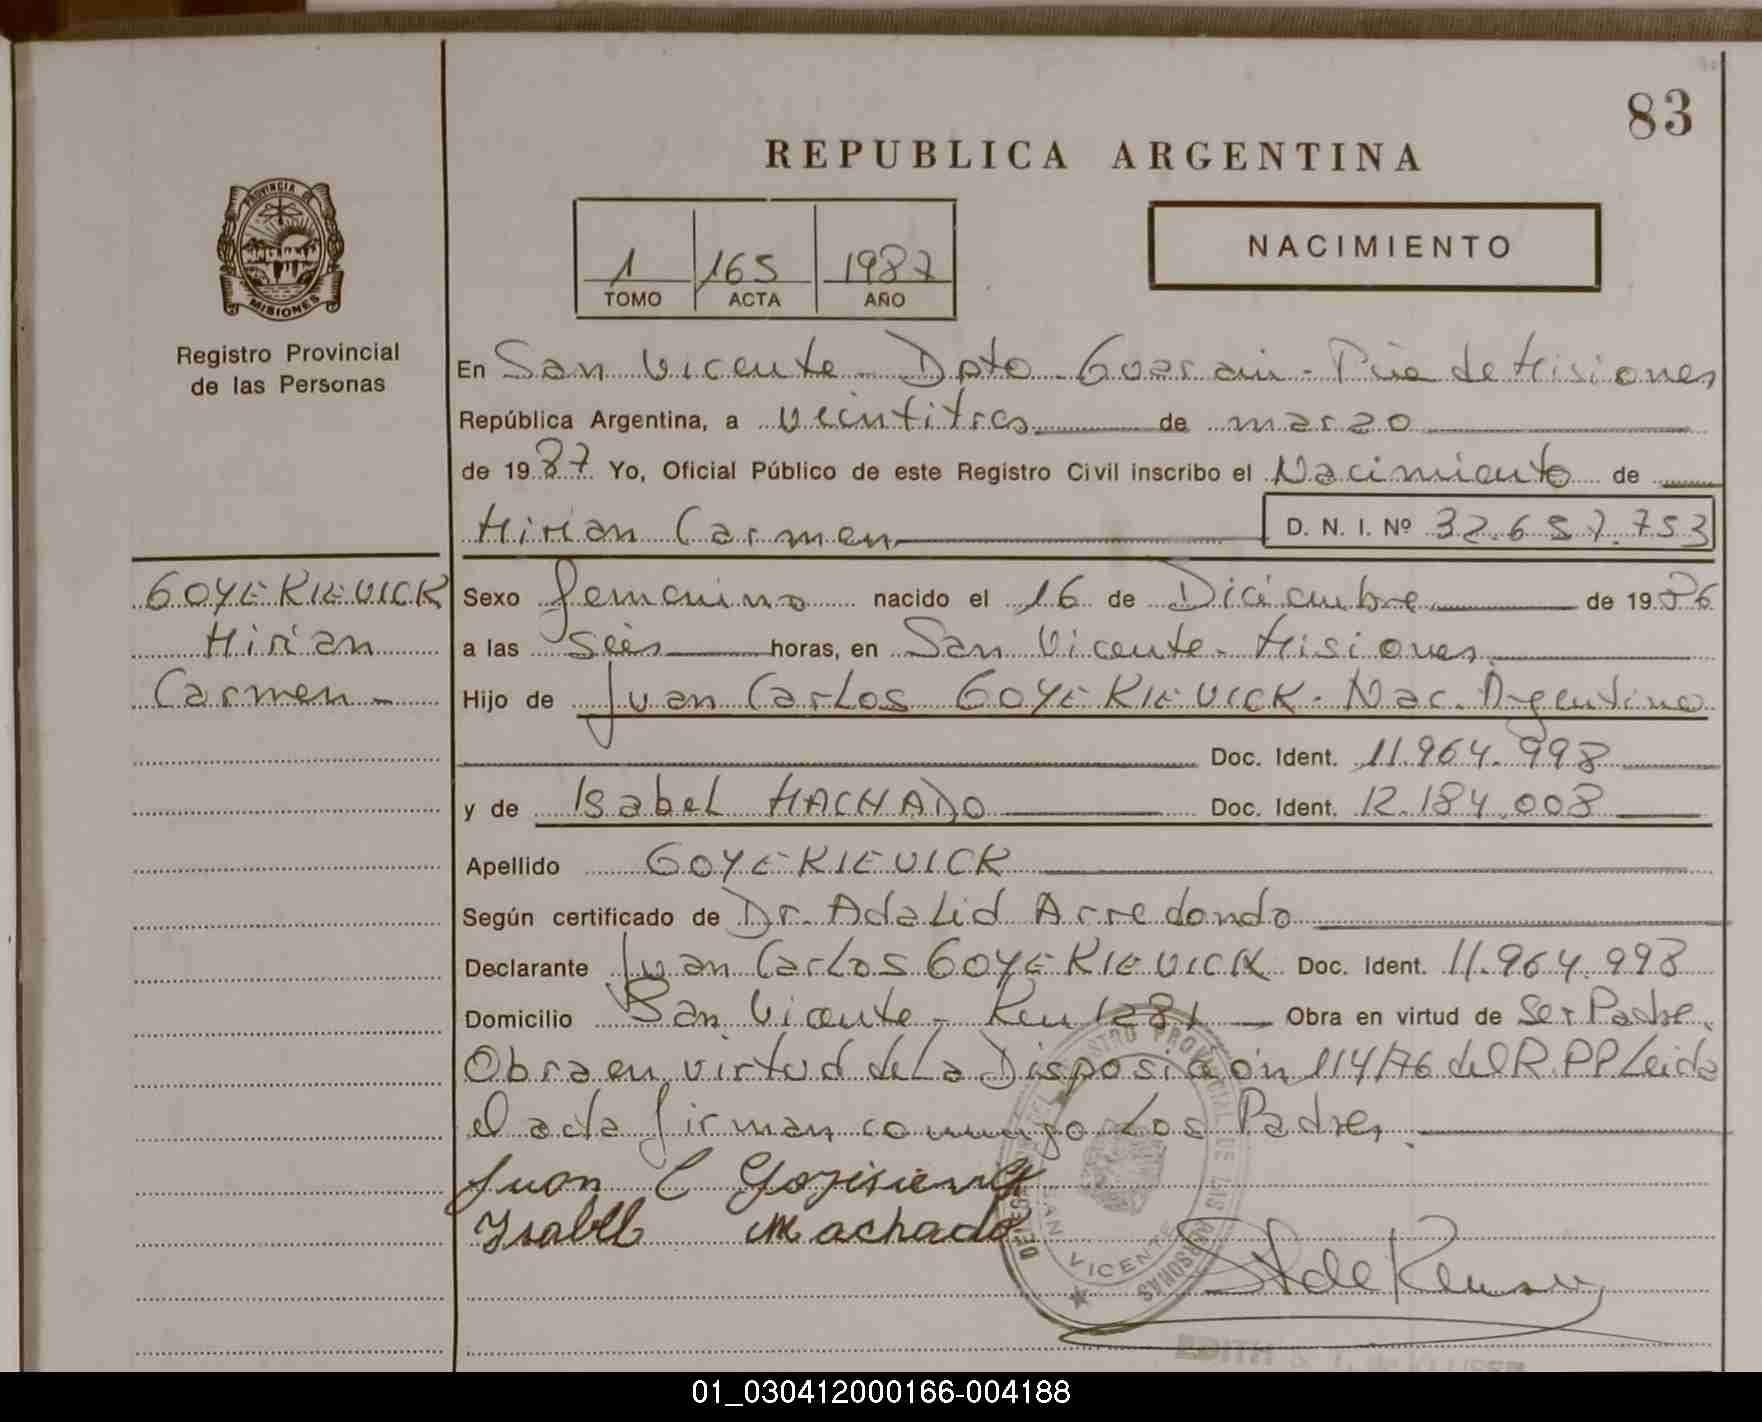 83
REPUBLICA ARGENTINA
PROVINCIA DE
MISIONES
Registro Provincial
de las Personas
1 165 1987
TOMO ACTA AÑO
NACIMIENTO
En San Vicente - Dpto - Guarani - Pcia de Misiones
República Argentina, a veintitres de marzo
de 1987 Yo, Oficial Público de este Registro Civil inscribo el Nacimiento de
Mirian Carmen D. N. I. Nº 32.657.753
GOYEKIEVICK
Mirian
Carmen -
Sexo femenino nacido el 16 de Diciembre de 1986
a las seis horas, en San Vicente - Misiones
Hijo de Juan Carlos GOYEKIEVICK - Nac. Argentino
Doc. Ident. 11.964.998
y de Isabel MACHADO Doc. Ident. 12.184.008
Apellido GOYEKIEVICK
Según certificado de Dr. Adalid Arredondo
Declarante Juan Carlos GOYEKIEVICK Doc. Ident. 11.964.998
Domicilio San Vicente - Km 1281 Obra en virtud de Ser Padre.
Obra en virtud de la Disposición 114/76 del R.P.P Leida
el acta firman conmigo los Padres.
Juan C
Isabel Machado
REGISTRO PROVINCIAL DE LAS PERSONAS
SAN VICENTE
EDITH
01_030412000166-004188